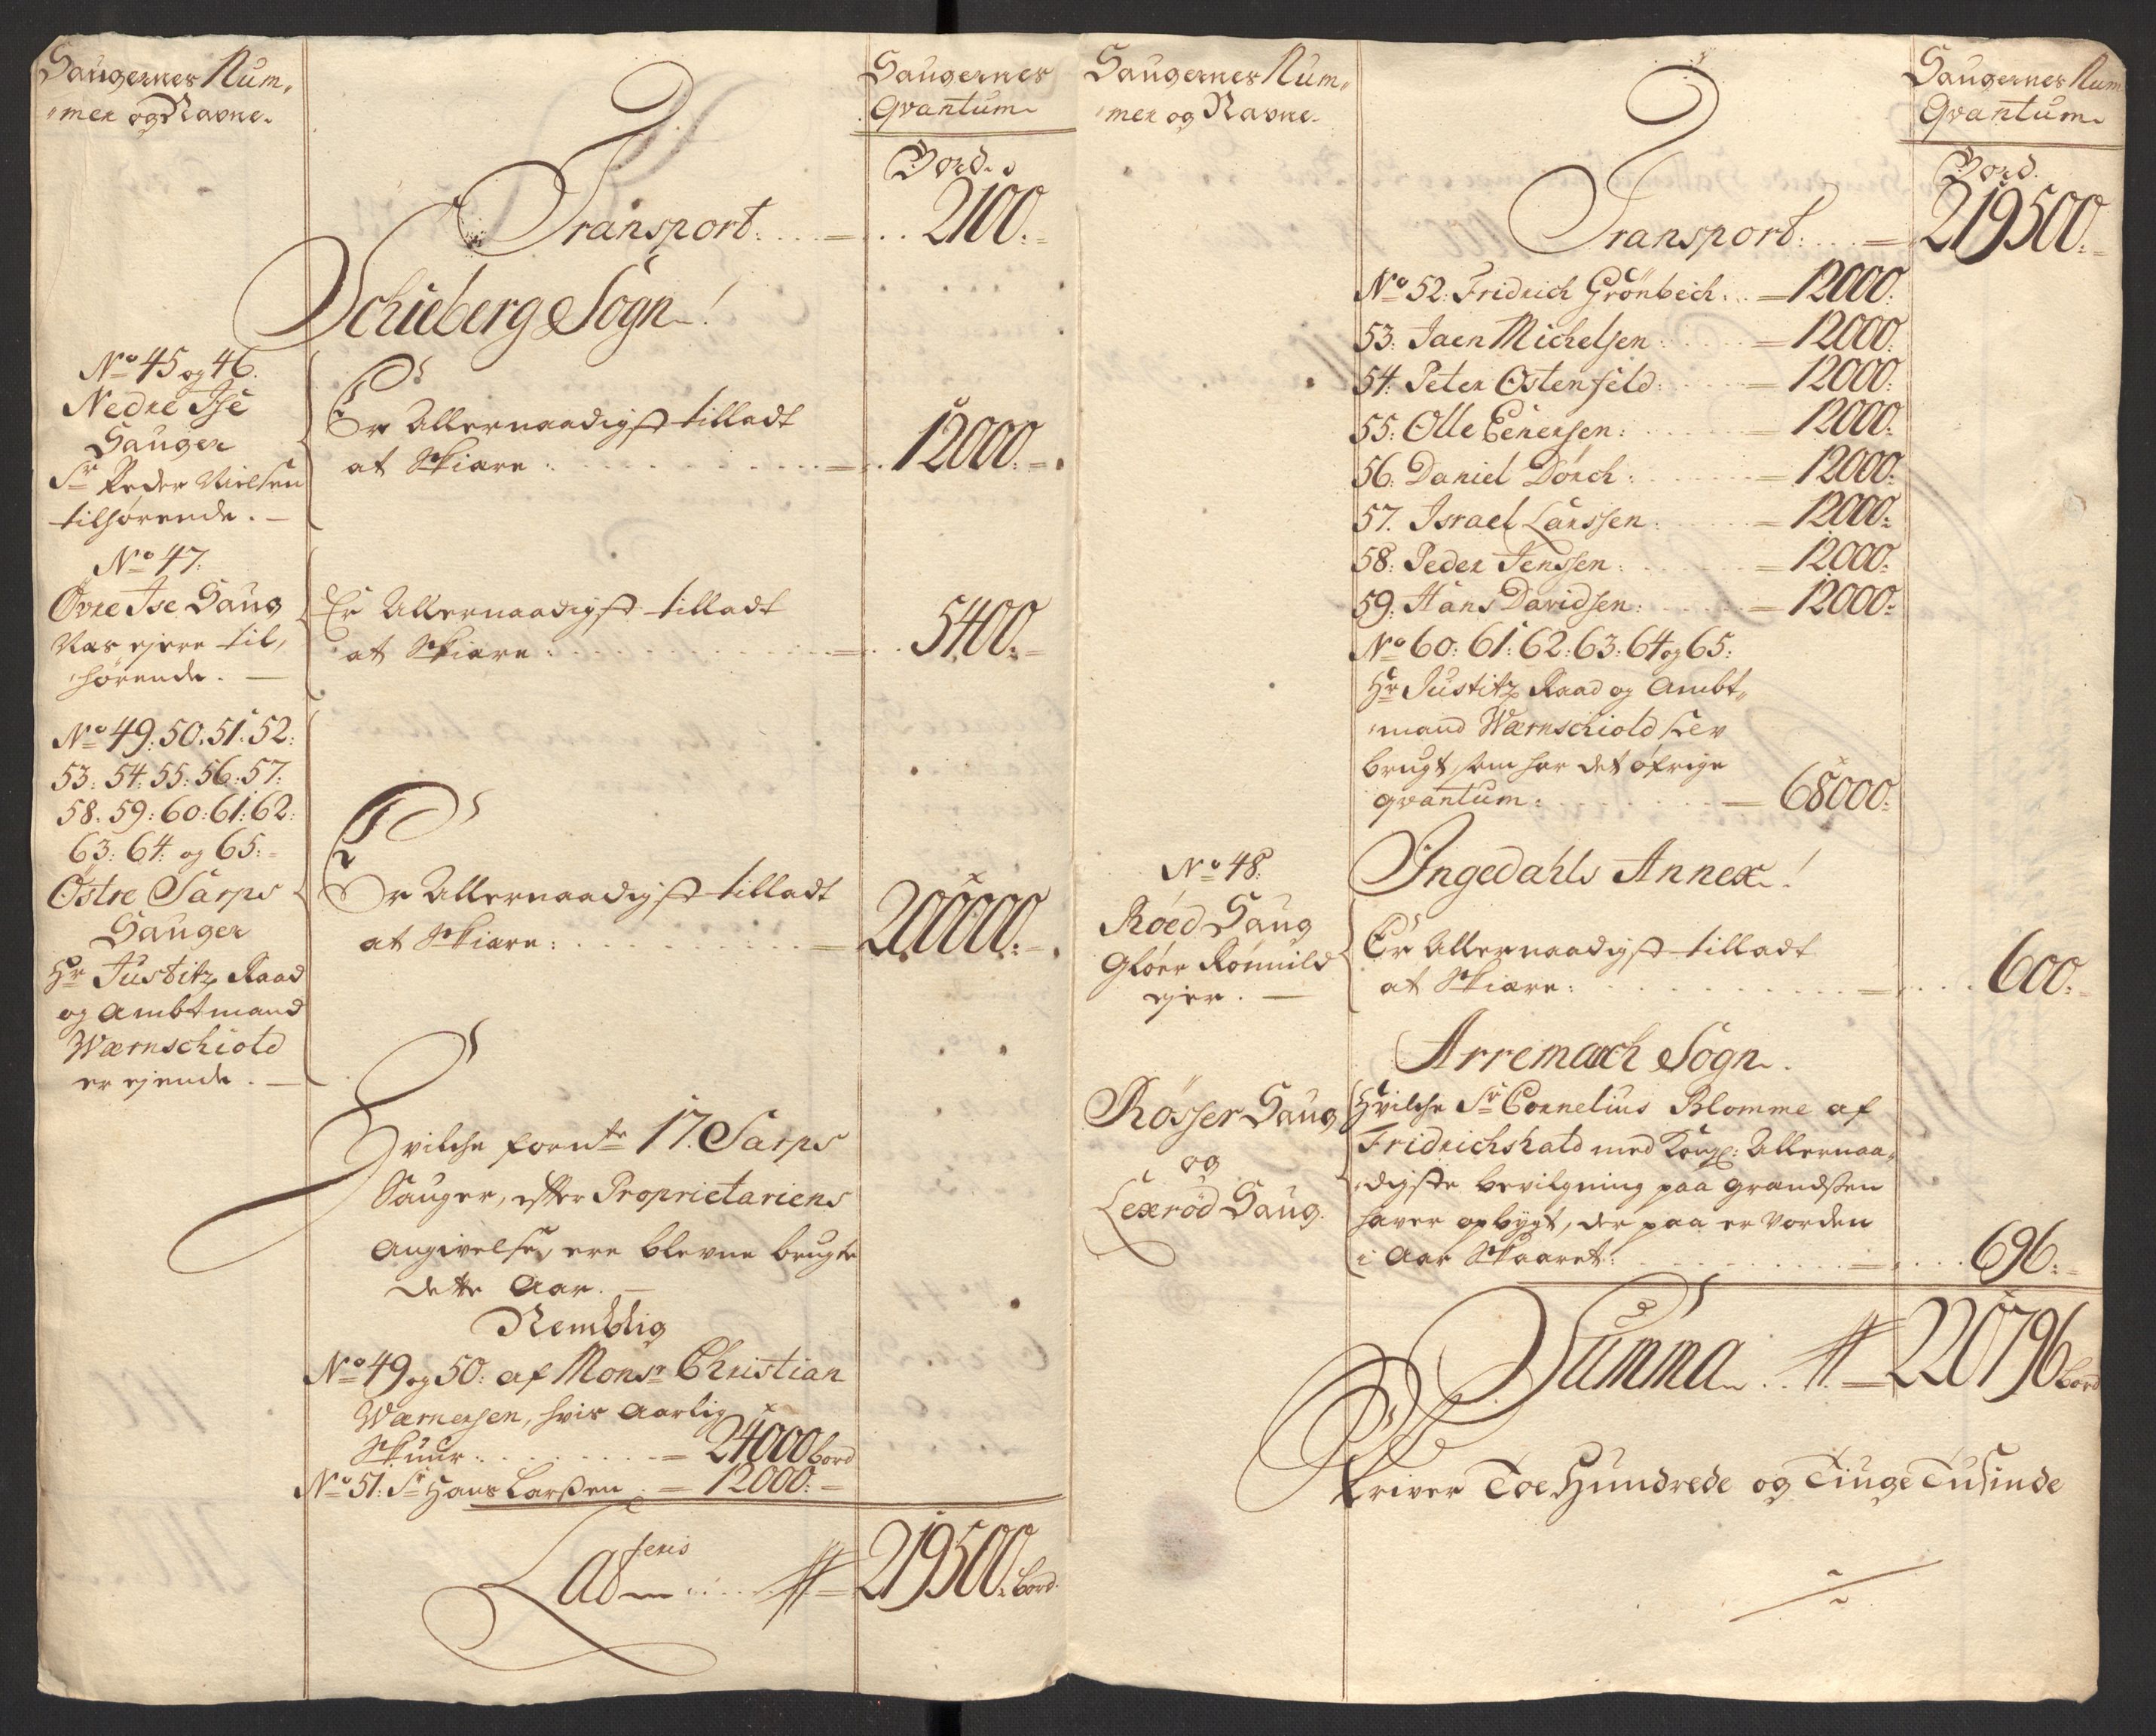 Saugernes Num,,
,,mer og Navne.
Saugernes
Qvantum
Bord.
Transport: 2100.
Schieberg Sogn!
No 45 og 46.
Nedre Ise
Sauger
Sr Peder Nielsen
tilhørende.
Er Allernaadigst tilladt
at Skiære: 12000.
No 47.
Øvre Ise Saug
Nes ejere til,
hørende.
Er Allernaadigst tilladt
at Skiære: 5400.
No 49. 50. 51. 52:
53: 54: 55: 56: 57:
58. 59: 60: 61: 62:
63: 64: og 65:
Østre Sarps
Sauger
Hr Justitz Raad
og Ambtmand
Wærnschiold
er ejende.
Er Allernaadigst tilladt
at Skiære: 200000.
Hvilche fornte 17. Sarps
Sauger, efter Proprietariens
Angivelse, ere blevne brugte
dette Aar.
Nemblig
No 49 og 50: af Monsr Christian
Wærnersen, hvis Aarlig
Skuur: 24000 bord
No 51: Sr Hans Larsen 12000:
Lateris 219500 bord.
Saugernes Num,,
,,mer og Navne.
Saugernes Num
Qvantum
Bord.
Transport: 219500.
No 52: Fridrich Grönbech: 12000:
53: Jaen Michelsen: 12000:
54: Peter Ostenfeld: 12000:
55: Olle Eenersen: 12000:
56: Daniel Dorch: 12000:
57. Israel Larssen: 12000:
58: Peder Jenssen: 12000:
59: Hans Davidsen: 12000:
No 60: 61: 62: 63: 64 og 65:
Hr Justitz Raad og Ambt,,
,,mand Wærnschiold self
brugt, som har det øfrige
qvantum: 68000:
Ingedahls Annex!
No 48:
Røed Saug
Gløer Rømild
ejer.
Er Allernaadigst tilladt
at Skiære: 600.
Arremarch Sogn.
Røsser Saug
og
Lexrød Saug.
Hvilche Sr Cornelius Blomme af
Fridrichshald med Kongl: Allernaa,,
,,digste bevilgning paa Grændsen
haver opbygt, der paa er vorden
i Aar Skaaret: 696:
Summa 220796 bord
Skriver Toe Hundrede og Tiuge Tusinde